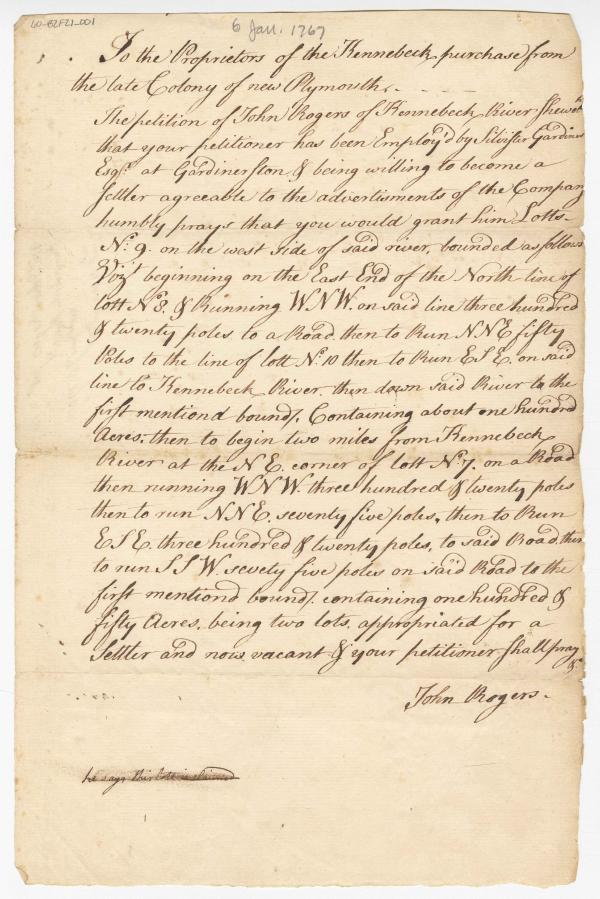 60-B2F21-001
6 Jan. 1767
To the Proprietors of the Kennebeck purchase from
the late Colony of new Plymouth.
The petition of John Rogers of Kennebeck River sheweth
that your petitioner has been Employ'd by Silvister Gardiner
Esqr. at Gardinerston & being willing to become a
settler agreeable to the advertisments of the Company
humbly prays that you would grant him Lotts
No. 9. on the west side of said river, bounded as follows
Vizt beginning on the East End of the North line of
lott No 8. & Running WNW. on said line three hundred
& twenty poles to a Road. then to Run NNE fifty
Poles to the line of lott No. 10 then to Run ESE. on said
line to Kennebeck River. then down said River to the
first mentiond bounds. Containing about one hundred
Acres. then to begin two miles from Kennebeck
River at the NE. corner of lott No 7. on a Road
then running WNW. three hundred & twenty poles
then to run NNE. seventy five poles, then to Run
ESE. three hundred & twenty poles, to said Road. then
to run SSW sevety five poles on said Road to the
first mentiond bounds. containing one hundred &
fifty Acres. being two lots, appropriated for a
Settler and now vacant & your petitioner shall pray
&c
John Rogers.
he says this lott is claimed